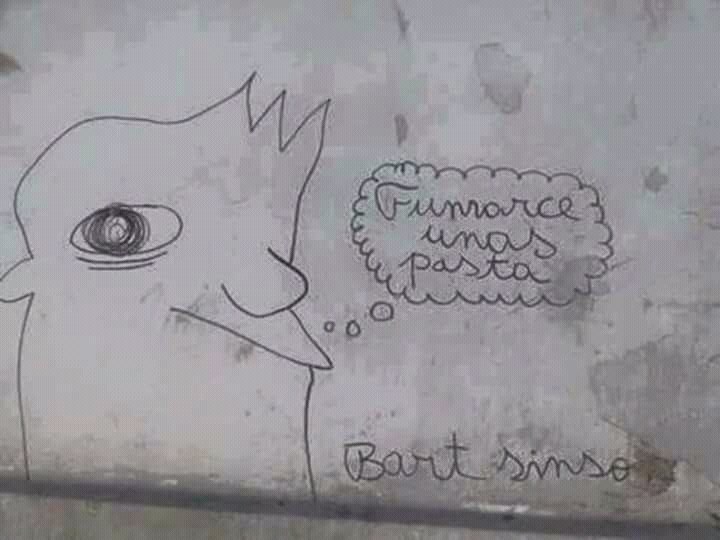 Fumarce
unas
pasta
Bart sinso